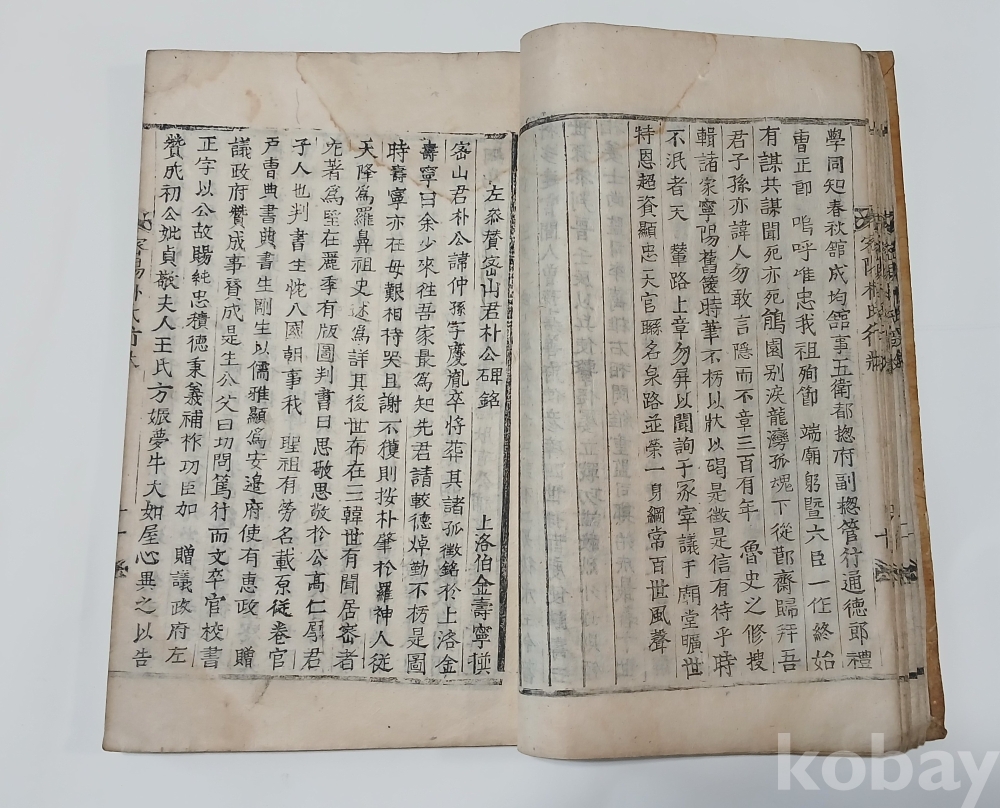 學同知春秋館成均館事五衛都摠府副摠管行通德郎禮
曹正郎 嗚呼唯忠我祖殉節 端廟躬曁六臣一任終始
有謀共謀聞死亦死鵑園别淚龍灣孤魂下從鄭齋歸拜吾
君子孫亦諱人勿敢言隱而不章三百有年 魯史之修搜
輯諸家寧陽舊篋時華不朽以狀以碣是徵是信有待乎時
不泯者天 輦路上章勿屏以聞詢于冢宰議于廟堂曠世
特恩超資顯忠天官縣名泉路並榮一身綱常百世風聲
左叅賛密山君朴公碑銘
上洛伯金壽寧撰
密山君朴公諱仲孫字慶胤卒將葬其諸孤徵銘於上洛金
壽寧曰余少來往吾家最爲知先君請較德焯勤不朽是圖
時壽寧亦在毋艱相持哭且謝不獲則按朴肇於羅神人從
天降爲羅鼻祖史述爲詳其後世布在三韓世有聞居密者
尤著爲堅在麗季有版圖判書曰思敬思敬於公高仁厚君
子人也判書生忱入國朝事我 聖祖有勞名載原從巻官
戸曹典書典書生剛生以儒雅顯爲安邊府使有惠政 贈
議政府賛成事賛成是生公父曰切問篤行而文卒官校書
正字以公故賜純忠積德秉義補祚功臣加 贈議政府左
賛成初公妣貞敬夫人王氏方娠夢牛大如屋心異之以告
kobay